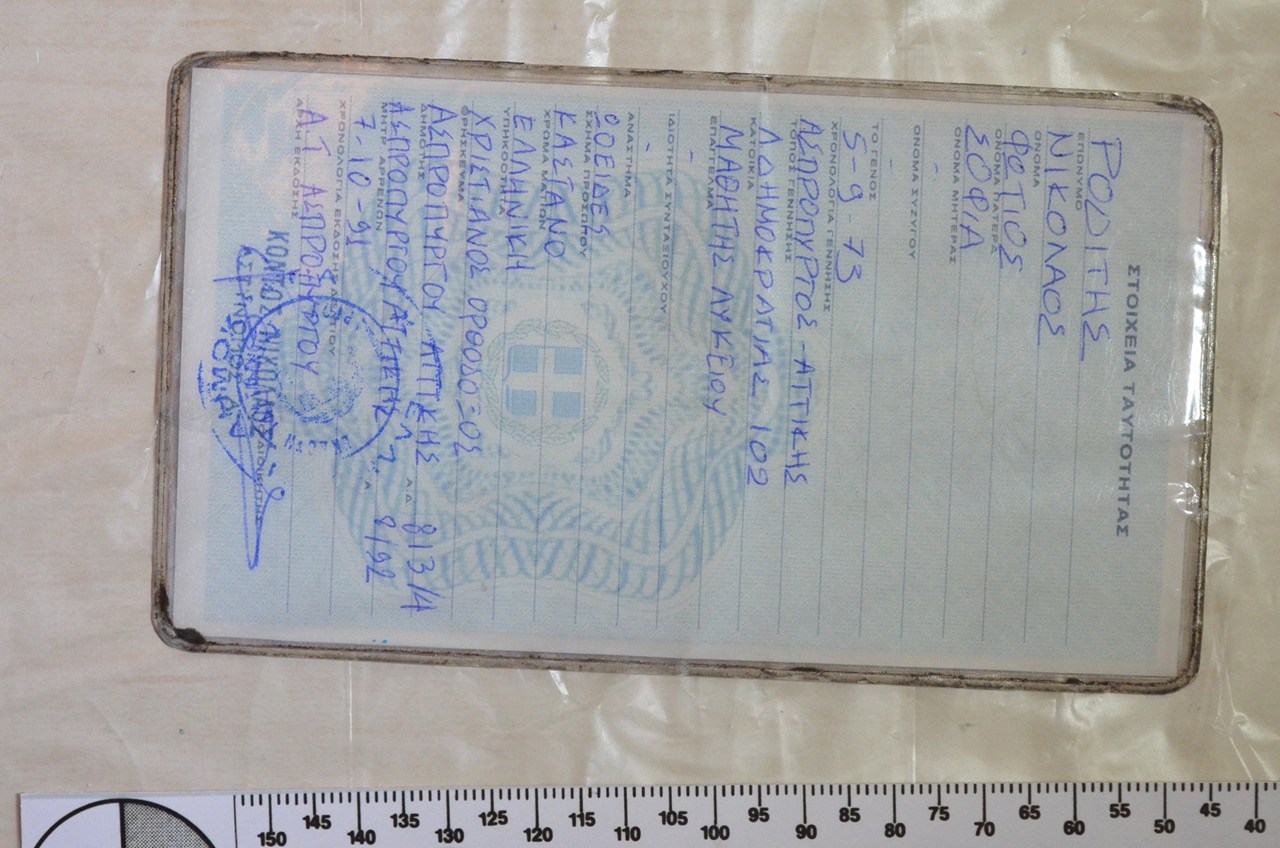 ΣΤΟΙΧΕΙΑ ΤΑΥΤΟΤΗΤΑΣ
ΡΟΔΙΤΗΣ
ΕΠΩΝΥΜΟ
ΝΙΚΟΛΑΟΣ
ΟΝΟΜΑ
ΦΩΤΙΟΣ
ΟΝΟΜΑ ΠΑΤΕΡΑ
ΣΟΦΙΑ
ΟΝΟΜΑ ΜΗΤΕΡΑΣ
-
ΟΝΟΜΑ ΣΥΖΥΓΟΥ
-
ΤΟ ΓΕΝΟΣ
5-9-73
ΧΡΟΝΟΛΟΓΙΑ ΓΕΝΝΗΣΗΣ
ΑΣΠΡΟΠΥΡΓΟΣ-ΑΤΤΙΚΗΣ
ΤΟΠΟΣ ΓΕΝΝΗΣΗΣ
Λ.ΔΗΜΟΚΡΑΤΙΑΣ 102
ΚΑΤΟΙΚΙΑ
ΜΑΘΗΤΗΣ ΛΥΚΕΙΟΥ
ΕΠΑΓΓΕΛΜΑ
-
ΙΔΙΟΤΗΤΑ ΣΥΝΤΑΞΙΟΥΧΟΥ
-
ΑΝΑΣΤΗΜΑ
ΩΟΕΙΔΕΣ
ΣΧΗΜΑ ΠΡΟΣΩΠΟΥ
ΚΑΣΤΑΝΟ
ΧΡΩΜΑ ΜΑΤΙΩΝ
ΕΛΛΗΝΙΚΗ
ΥΠΗΚΟΟΤΗΤΑ
ΧΡΙΣΤΙΑΝΟΣ ΟΡΘΟΔΟΞΟΣ
ΘΡΗΣΚΕΥΜΑ
ΑΣΠΡΟΠΥΡΓΟΥ ΑΤΤΙΚΗΣ Α.Δ. 813/4
ΔΗΜΟΤΗΣ
ΑΣΠΡΟΠΥΡΓΟΥ ΑΤΤΙΚΗΣ
ΜΗΤΡ. ΑΡΡΕΝΩΝ
7-10-91
ΧΡΟΝΟΛΟΓΙΑ ΕΚΔΟΣΗΣ ΔΕΛΤΙΟΥ
Α.Τ. ΑΣΠΡΟΠΥΡΓΟΥ
ΑΡΧΗ ΕΚΔΟΣΗΣ
Ο ΔΙΟΙΚΗΤΗΣ
ΚΟΝΤΟΣ ΝΙΚΟΛΑΟΣ
150 145 140 135 130 125 120 115 110 105 100 95 90 85 80 75 70 65 60 55 50 45 40